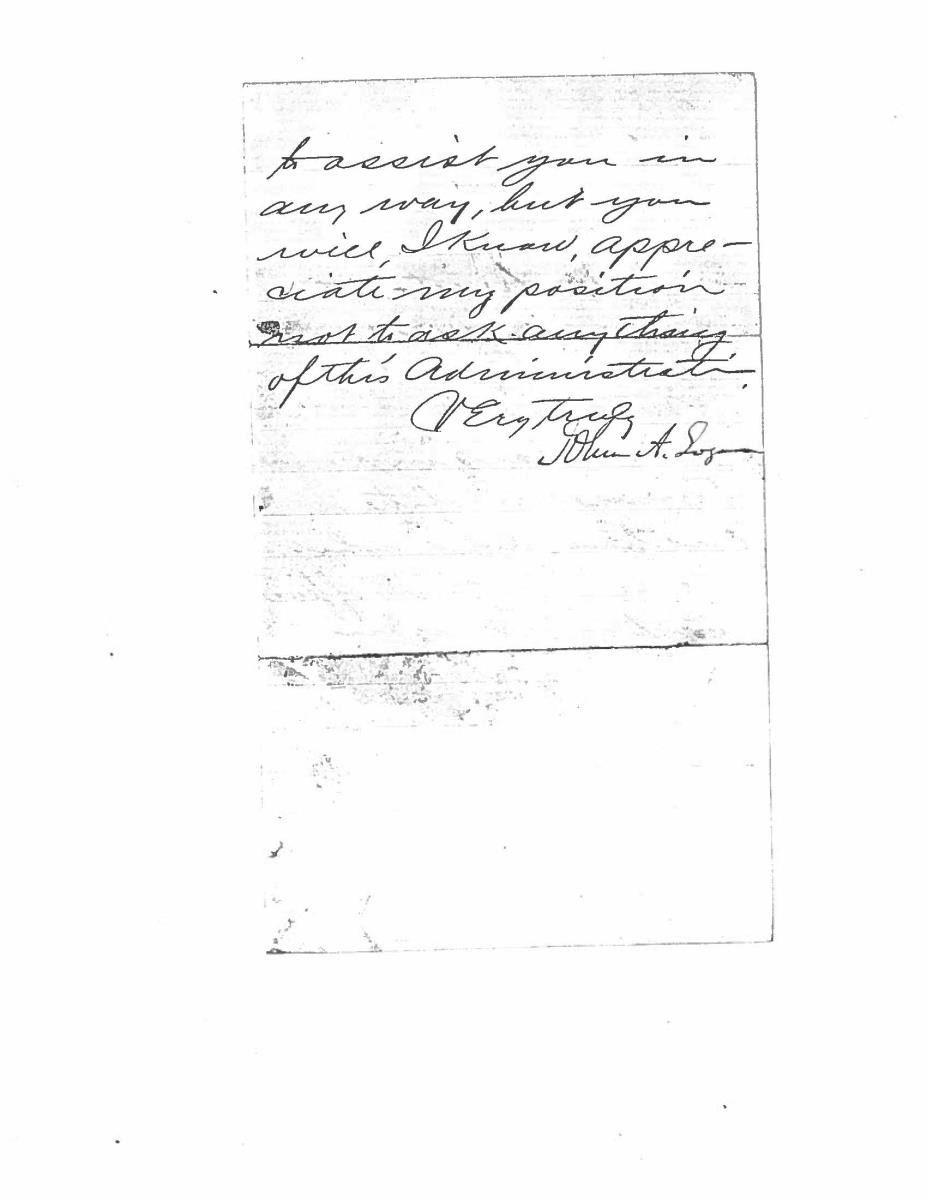 to assist you in
any way, but you
will, I know, appre-
ciate my position
not to ask anything
of this Administrati.
Very truly
John A. Logan